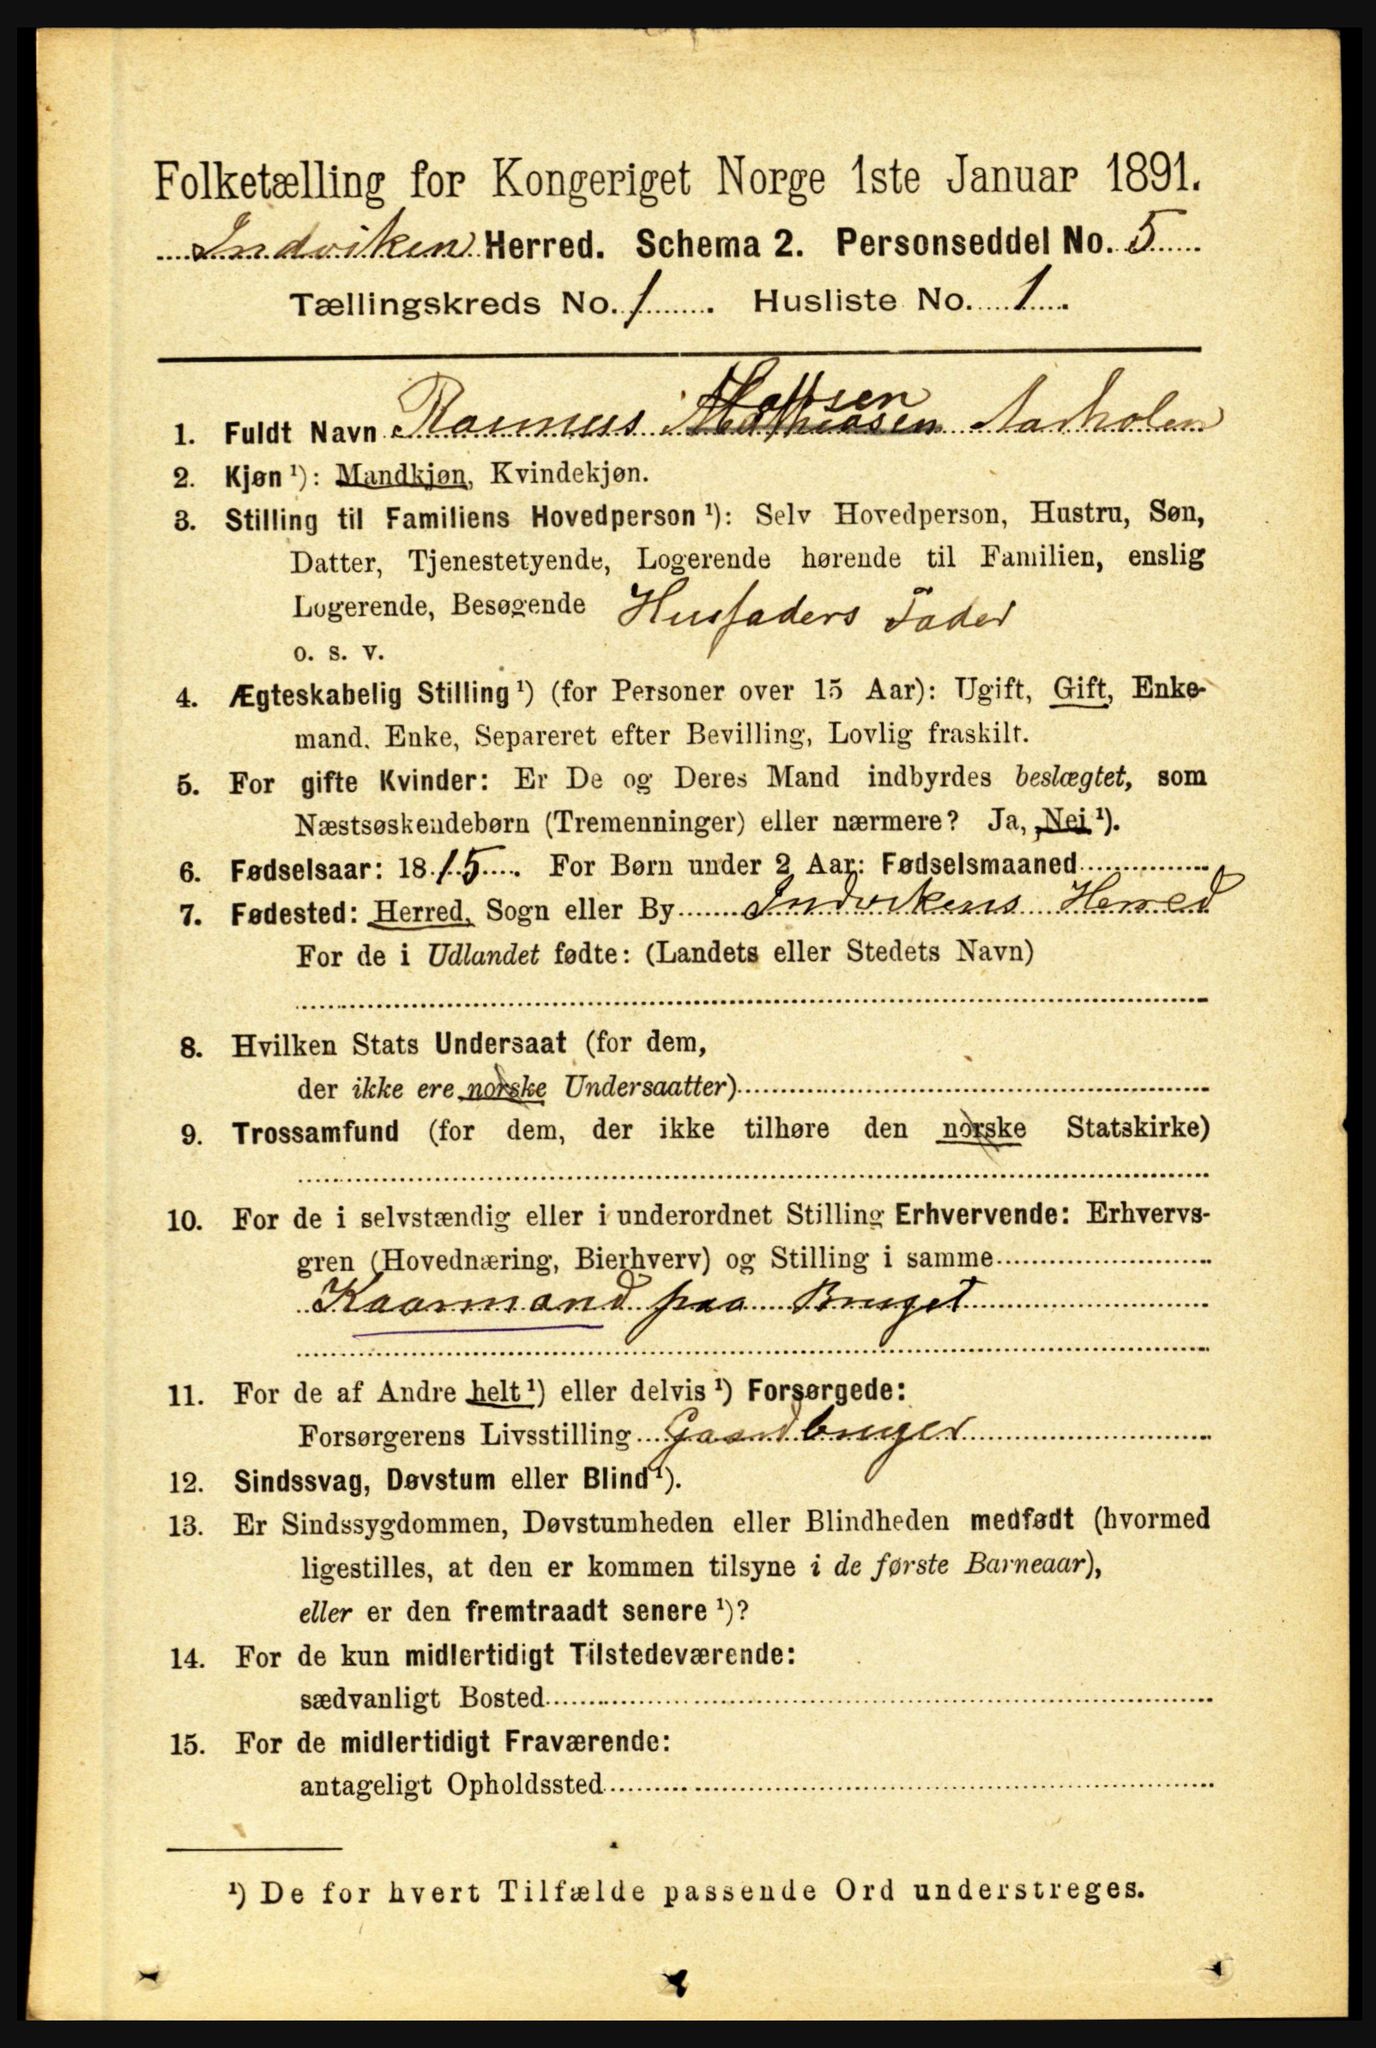 Folketælling for Kongeriget Norge 1ste Januar 1891.
Indviken Herred. Schema 2. Personseddel No. 5
Tællingskreds No. 1. Husliste No. 1.
1. Fuldt Navn Rasmus Mathiasen Aarholen
2. Kjøn ¹): Mandkjøn, Kvindekjøn.
3. Stilling til Familiens Hovedperson ¹): Selv Hovedperson, Hustru, Søn,
Datter, Tjenestetyende, Logerende hørende til Familien, enslig
Logerende, Besøgende Husfaders Fader
o. s. v.
4. Ægteskabelig Stilling ¹) (for Personer over 15 Aar): Ugift, Gift, Enke-
mand, Enke, Separeret efter Bevilling, Lovlig fraskilt.
5. For gifte Kvinder: Er De og Deres Mand indbyrdes beslægtet, som
Næstsøskendebørn (Tremenninger) eller nærmere? Ja, Nei ¹).
6. Fødselsaar: 1815. For Børn under 2 Aar: Fødselsmaaned
7. Fødested: Herred, Sogn eller By Indvikens Herred
For de i Udlandet fødte: (Landets eller Stedets Navn)
8. Hvilken Stats Undersaat (for dem,
der ikke ere norske Undersaatter)
9. Trossamfund (for dem, der ikke tilhøre den norske Statskirke)
10. For de i selvstændig eller i underordnet Stilling Erhvervende: Erhvervs-
gren (Hovednæring, Bierhverv) og Stilling i samme
Kaarmand paa Bruget
11. For de af Andre helt ¹) eller delvis ¹) Forsørgede:
Forsørgerens Livsstilling Gaardbruger
12. Sindssvag, Døvstum eller Blind ¹).
13. Er Sindssygdommen, Døvstumheden eller Blindheden medfødt (hvormed
ligestilles, at den er kommen tilsyne i de første Barneaar),
eller er den fremtraadt senere ¹)?
14. For de kun midlertidigt Tilstedeværende:
sædvanligt Bosted
15. For de midlertidigt Fraværende:
antageligt Opholdssted
¹) De for hvert Tilfælde passende Ord understreges.